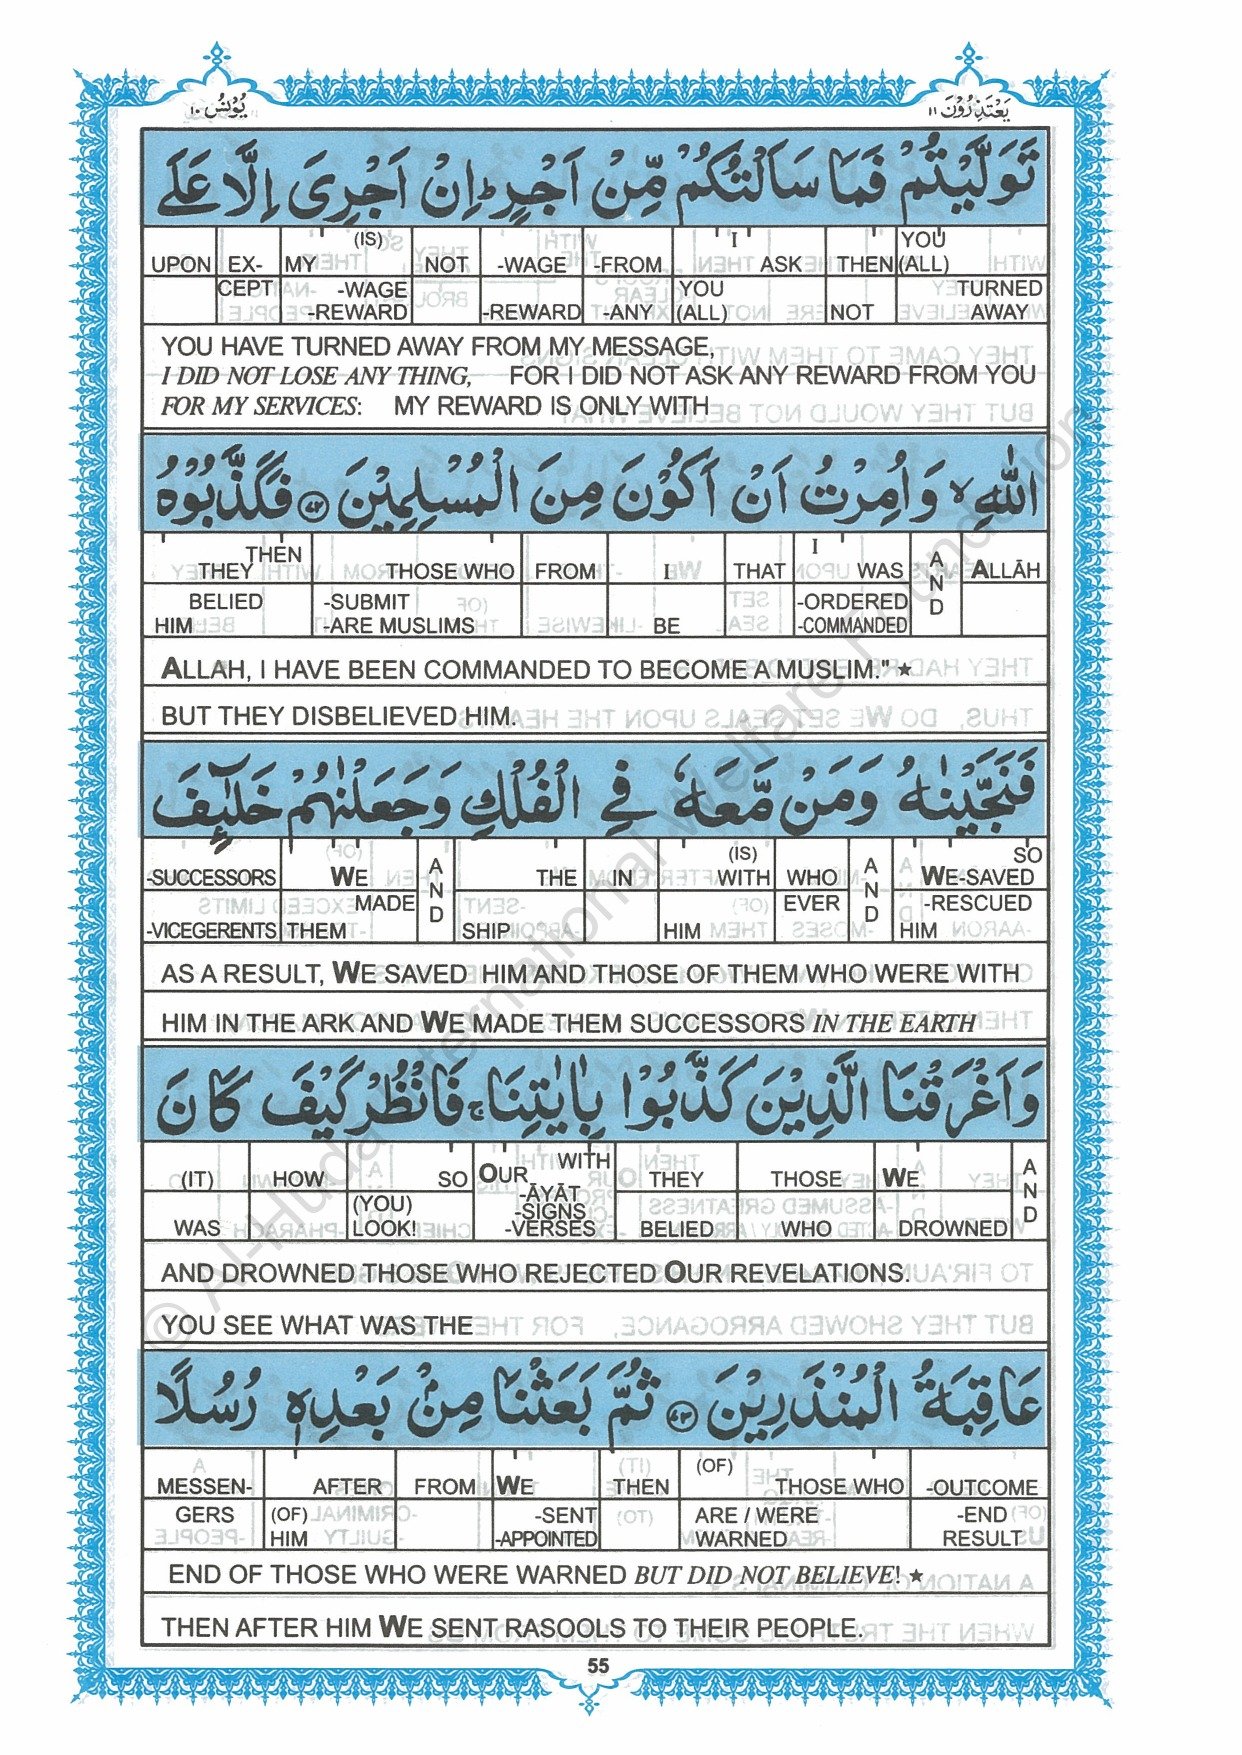 یَعْتَذِرُوْنَ ١١
یُوْنُسُ ١٠
تَوَلَّیْتُمْ فَمَا سَاَلْتُكُمْ مِّنْ اَجْرٍ ؕ اِنْ اَجْرِیَ اِلَّا عَلَی
UPON EX- MY (IS) NOT -WAGE -FROM I ASK THEN YOU (ALL)
CEPT -WAGE -REWARD -REWARD -ANY YOU (ALL) NOT TURNED AWAY
YOU HAVE TURNED AWAY FROM MY MESSAGE,
I DID NOT LOSE ANY THING, FOR I DID NOT ASK ANY REWARD FROM YOU
FOR MY SERVICES: MY REWARD IS ONLY WITH
اللّٰهِ ۙ وَاُمِرْتُ اَنْ اَكُوْنَ مِنَ الْمُسْلِمِیْنَ ﴿٧٢﴾ فَكَذَّبُوْهُ
THEN THEY THOSE WHO FROM I THAT I WAS AND ALLĀH
BELIED HIM -SUBMIT -ARE MUSLIMS BE -ORDERED -COMMANDED
ALLAH, I HAVE BEEN COMMANDED TO BECOME A MUSLIM." ★
BUT THEY DISBELIEVED HIM.
فَنَجَّیْنٰهُ وَمَنْ مَّعَهٗ فِی الْفُلْكِ وَجَعَلْنٰهُمْ خَلٰٓئِفَ
-SUCCESSORS WE AND THE IN (IS) WITH WHO AND SO WE-SAVED
-VICEGERENTS MADE THEM SHIP HIM EVER -RESCUED HIM
AS A RESULT, WE SAVED HIM AND THOSE OF THEM WHO WERE WITH
HIM IN THE ARK AND WE MADE THEM SUCCESSORS IN THE EARTH
وَاَغْرَقْنَا الَّذِیْنَ كَذَّبُوْا بِاٰیٰتِنَا ۚ فَانْظُرْ كَیْفَ كَانَ
(IT) HOW SO OUR WITH THEY THOSE WE AND
WAS (YOU) LOOK! -ĀYĀT -SIGNS -VERSES BELIED WHO DROWNED
AND DROWNED THOSE WHO REJECTED OUR REVELATIONS.
YOU SEE WHAT WAS THE
عَاقِبَةُ الْمُنْذَرِیْنَ ﴿٧٣﴾ ثُمَّ بَعَثْنَا مِنْۢ بَعْدِهٖ رُسُلًا
MESSEN- AFTER FROM WE THEN (OF) THOSE WHO -OUTCOME
GERS (OF) HIM -SENT -APPOINTED ARE / WERE WARNED -END RESULT
END OF THOSE WHO WERE WARNED BUT DID NOT BELIEVE! ★
THEN AFTER HIM WE SENT RASOOLS TO THEIR PEOPLE.
55
© Al-Huda International Welfare Foundation